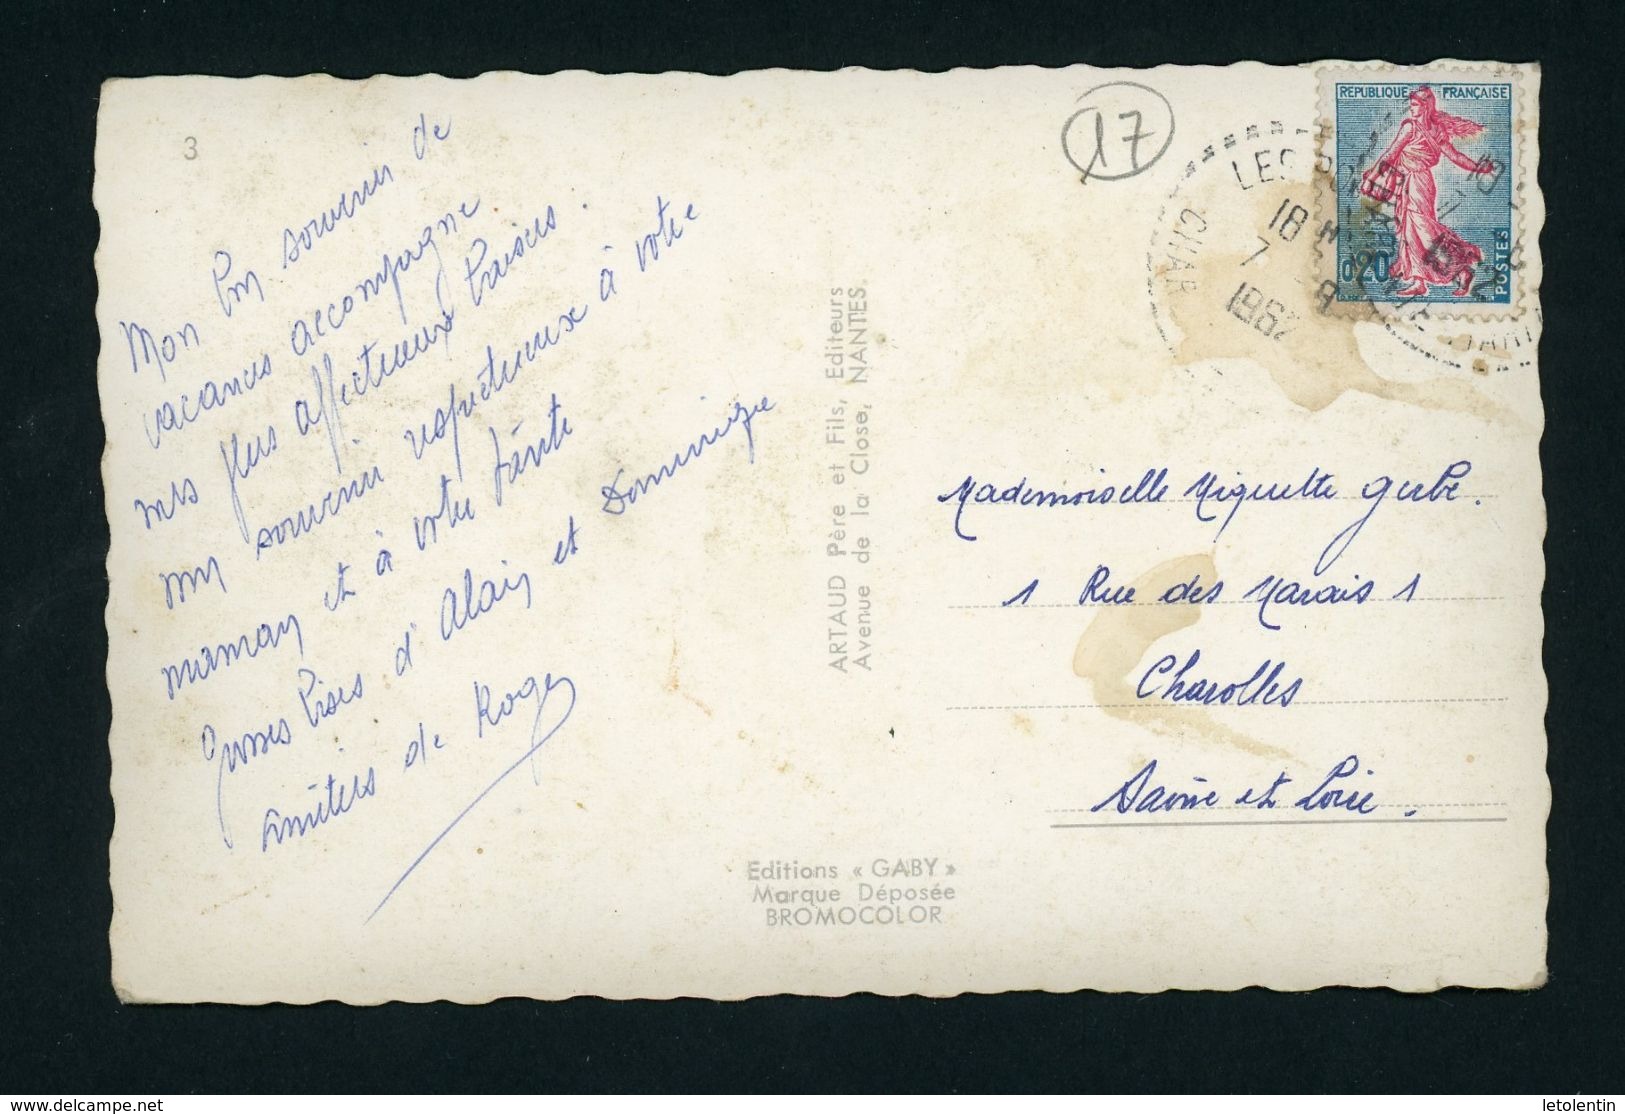 3
Mon bon souvenir de
vacances accompagne
mes plus affectueux baisers.
mon souvenir respectueux à votre
maman et à votre tante
Grosses bises d'Alain et Dominique
amitiés de Roger
ARTAUD Père et Fils, Editeurs
Avenue de la Close, NANTES
Editions « GABY »
Marque Déposée
BROMOCOLOR
17
LES
18 H
7 - 8
1962
CHAR
REPUBLIQUE FRANÇAISE
0,20
POSTES
Mademoiselle Miguette Gerbe.
1 Rue des Marais 1
Charolles
Saône et Loire.
www.delcampe.net
letolentin